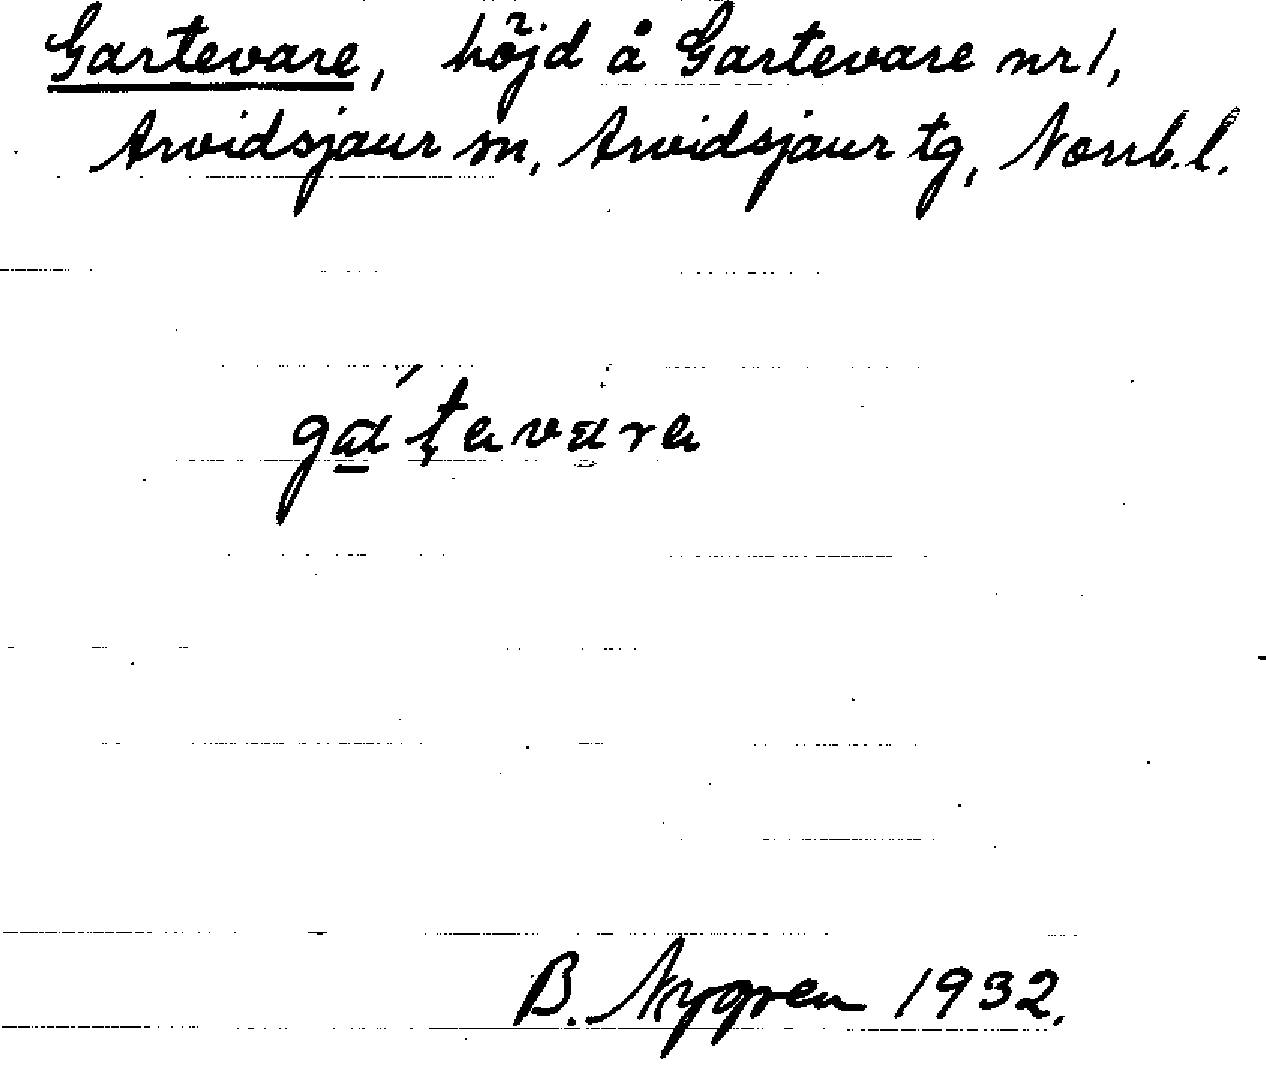 Gartevare, höjd å Gartevare nr 1,
Arvidsjaur sn, Arvidsjaur tg, Norrb. l.
B. Nygren 1932.